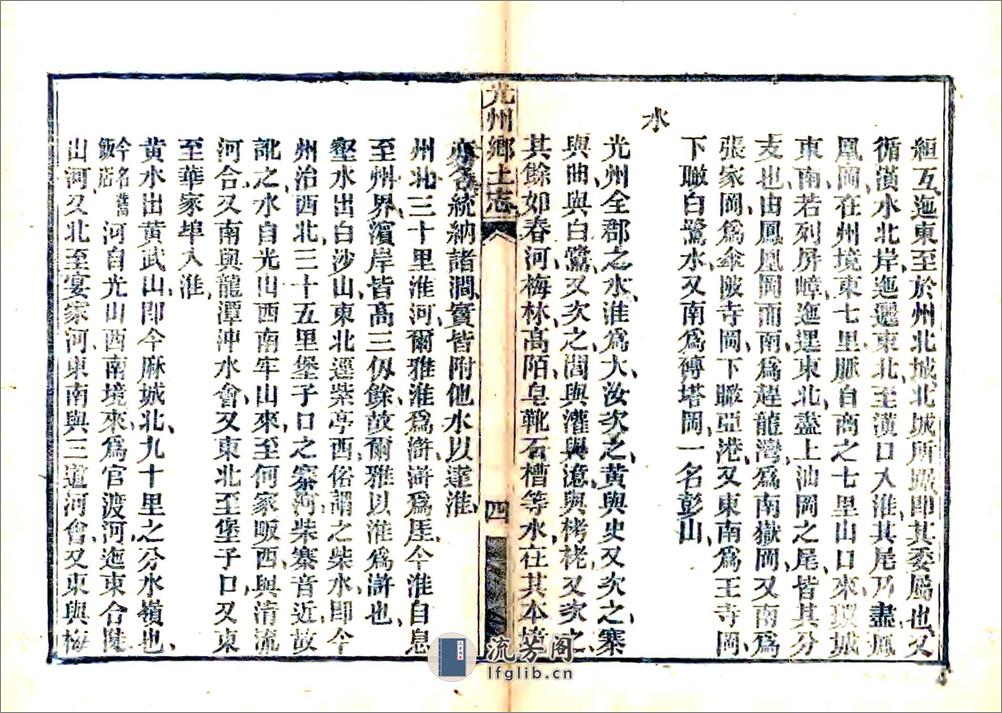 組互迤東至於州北城北城所踞卽其委屬也又
循漢水北岸迤邐東北至漢口入淮其尾乃盡鳳
凰岡在州境東七里脈自商之七里山口來環城
東南若列屏嶂迤邐東北盡上油岡之尾皆其分
支也由鳳凰岡而南爲趕龍灣爲南嶽岡又南爲
張家岡爲傘陂寺岡下瞰亞港又東南爲王寺岡
下瞰白鷺水又南爲磚塔岡一名彭山
水
光州全郡之水淮爲大汝次之黃與史又次之寨
與曲與白鷺又次之閭與灌與澺與栲栳又次之
其餘如春河梅林高陌皂靴石槽等水在其本境
亦各統納諸澗實皆附他水以達淮
光州鄉土志
四
州北三十里淮河爾雅淮爲滸滸爲厓今淮自息
至州界濱岸皆高三仭餘故爾雅以淮爲滸也
壑水出白沙山東北逕柴亭西俗謂之柴水卽今
州治西北三十五里堡子口之寨河柴寨音近故
訛之水自光山西南牢山來至何家畈西與清流
河合又南與龍潭沖水會又東北至堡子口又東
至華家埠入淮
黃水出黃武山卽今麻城北九十里之分水嶺也
今名舊飯店河自光山西南境來爲官渡河迤東合陡
山河又北至宴家河東南與三道河會又東與梅
流芳阁
lfglib.cn